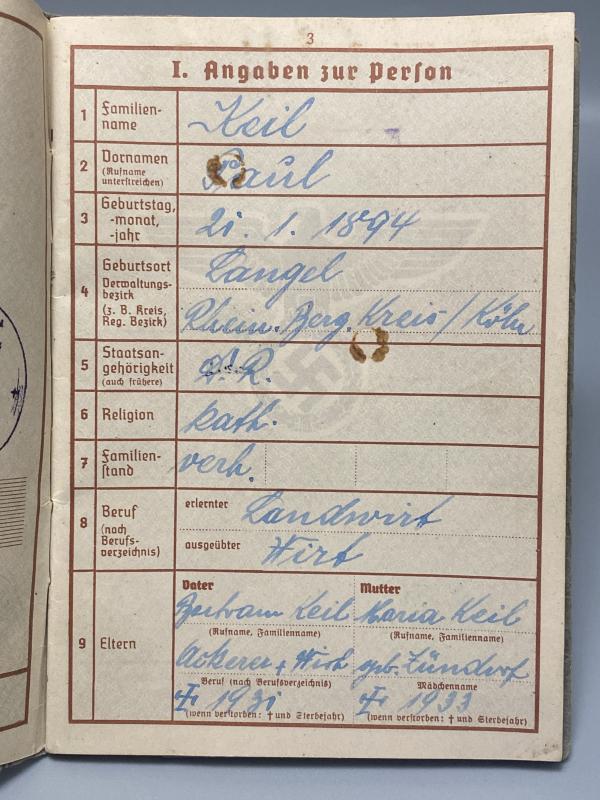 3
I. Angaben zur Person
1 Familien-
name
Keil
2 Vornamen
(Rufname
unterstreichen)
Paul
3 Geburtstag,
-monat,
-jahr
21. 1. 1894
4 Geburtsort
Verwaltungs-
bezirk
(z. B. Kreis,
Reg. Bezirk)
Langel
Rhein. Berg. Kreis / Köln
5 Staatsan-
gehörigkeit
(auch frühere)
D. R.
6 Religion
kath.
7 Familien-
stand
verh.
8 Beruf
(nach
Berufs-
verzeichnis)
erlernter Landwirt
ausgeübter Wirt
9 Eltern
Vater
Bertram Keil
(Rufname, Familienname)
Ackerer + Wirt
Beruf (nach Berufsverzeichnis)
1931
(wenn verstorben: † und Sterbejahr)
Mutter
Maria Keil
(Rufname, Familienname)
geb. Zündorf
Mädchenname
1933
(wenn verstorben: † und Sterbejahr)